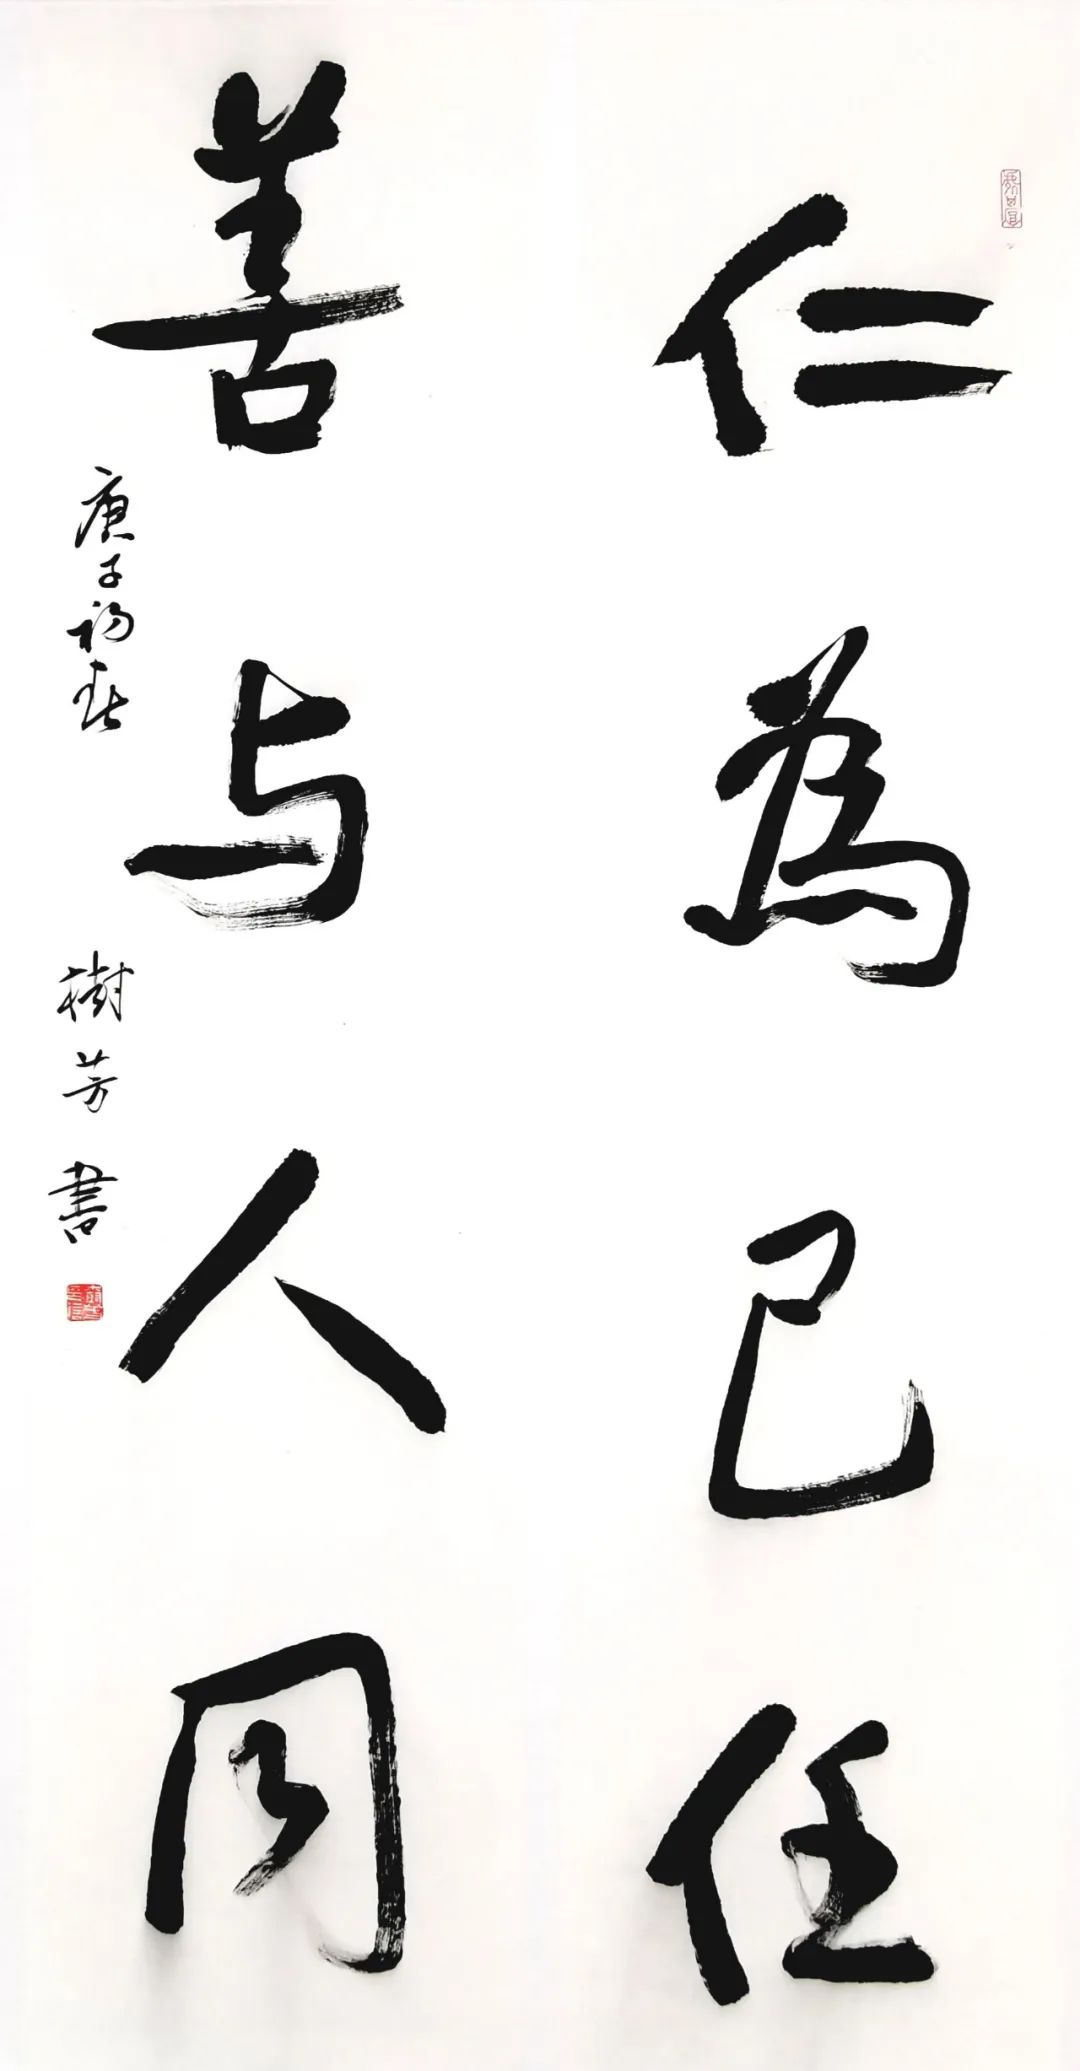 仁為己任
善与人同
庚子初春 樹芳書